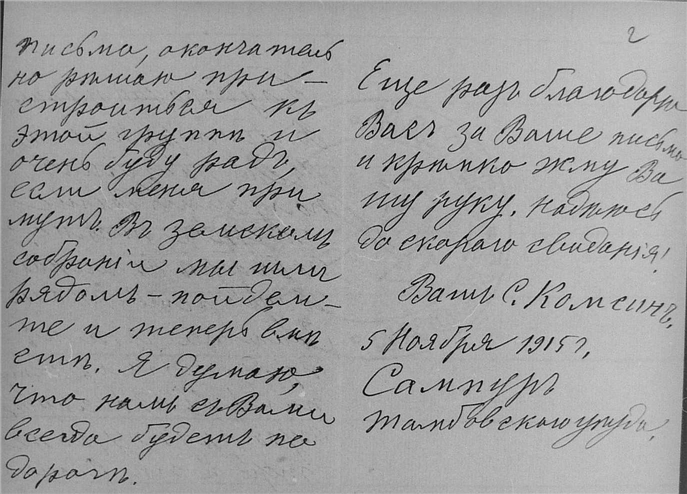 письмо, окончатель
но рѣшаю при-
строиться къ
этой группѣ и
очень буду радъ,
если меня при
мутъ. Въ земскомъ
собраніи мы шли
рядомъ – пойдем-
те и теперь вмѣ
стѣ. Я думаю,
что намъ съ Вами
всегда будетъ по
дорогѣ.
2
Еще разъ благодарю
Васъ за Ваше письмо
и крѣпко жму Ва
шу руку. Надѣюсь
до скораго свиданія!
Вашъ С. Комсинъ,
5 Ноября 1915 г,
Сампуръ
Тамбовскаго уѣзда.